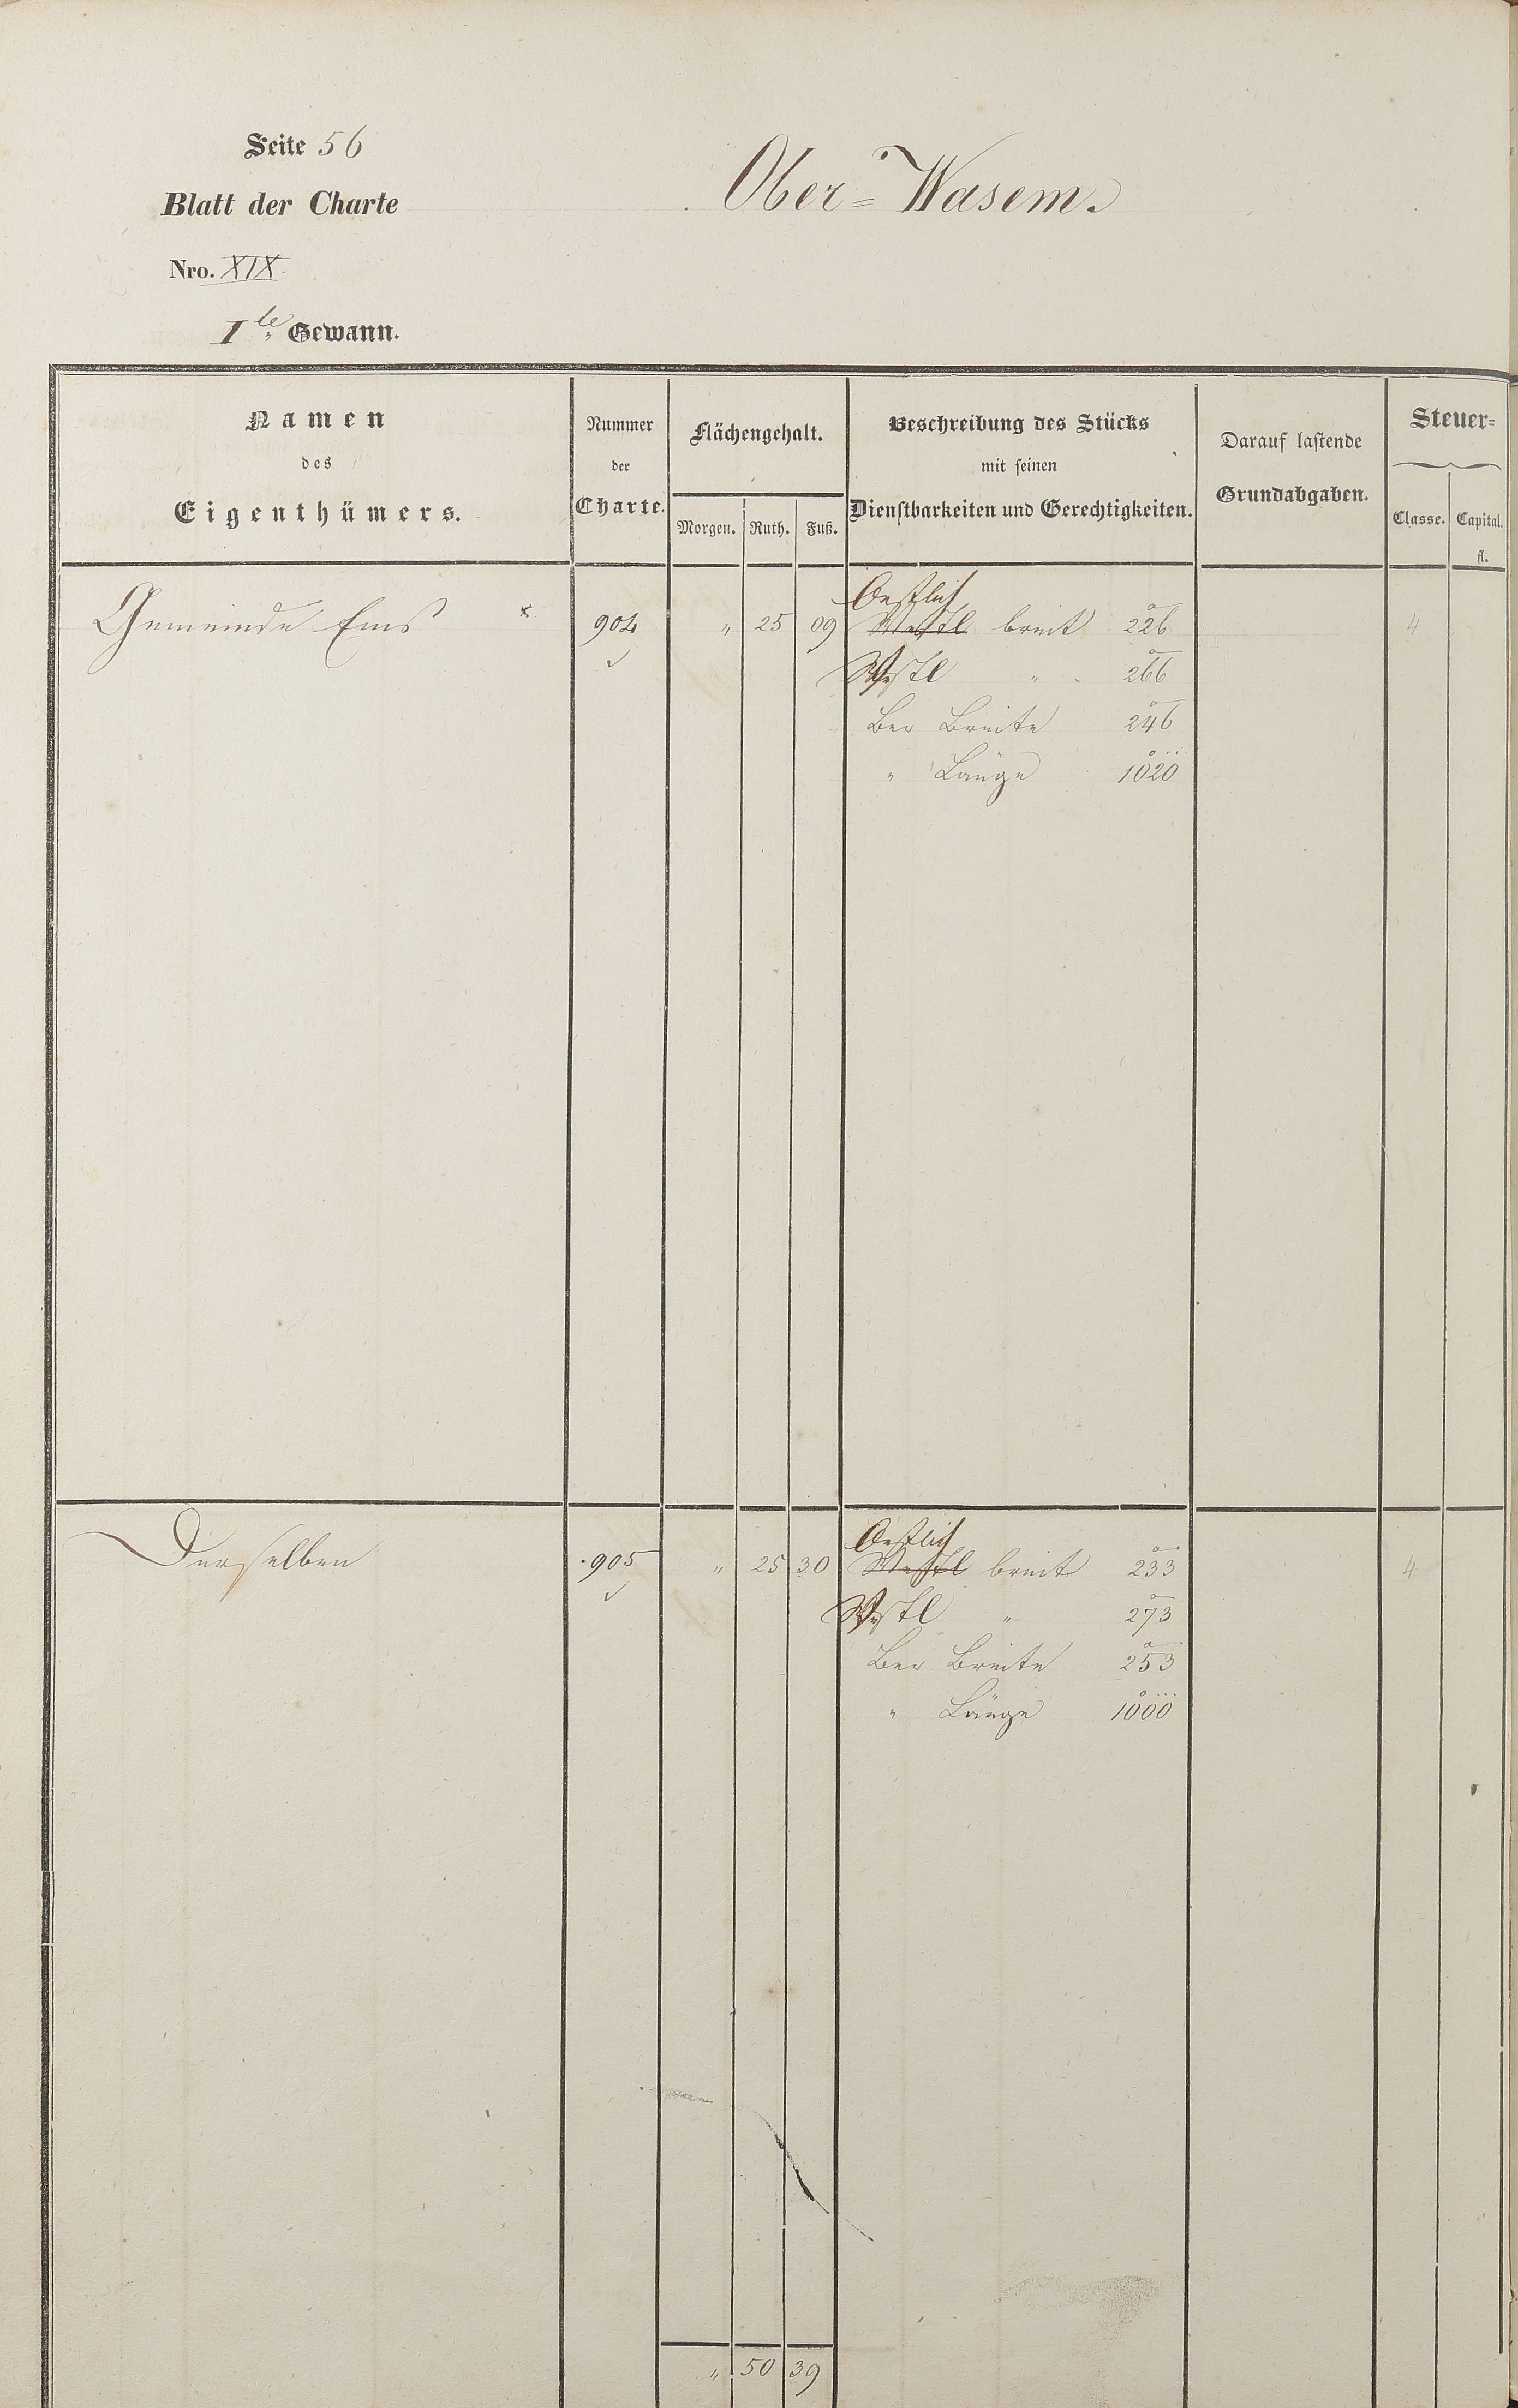 Seite 56
Blatt der Charte
Nro. XIX.
Ober=Wasem.
Ite Gewann.
Namen
des
Eigenthümers.
Nummer
der
Charte.
Flächengehalt.
Morgen. Ruth. Fuß.
Beschreibung des Stücks
mit seinen
Dienstbarkeiten und Gerechtigkeiten.
Darauf lastende
Grundabgaben.
Steuer=
Classe. Capital.
fl.
Oestlich
Gemeinde Ems × 904 " 25 09 Westl breit 226 4
Westl " 266
Ber Breite 246
" Länge 1020
Oestlich
Derselben 905 " 25 30 Westl breit 233 4
Westl " 273
Ber Breite 253
" Länge 1000
" 50 39